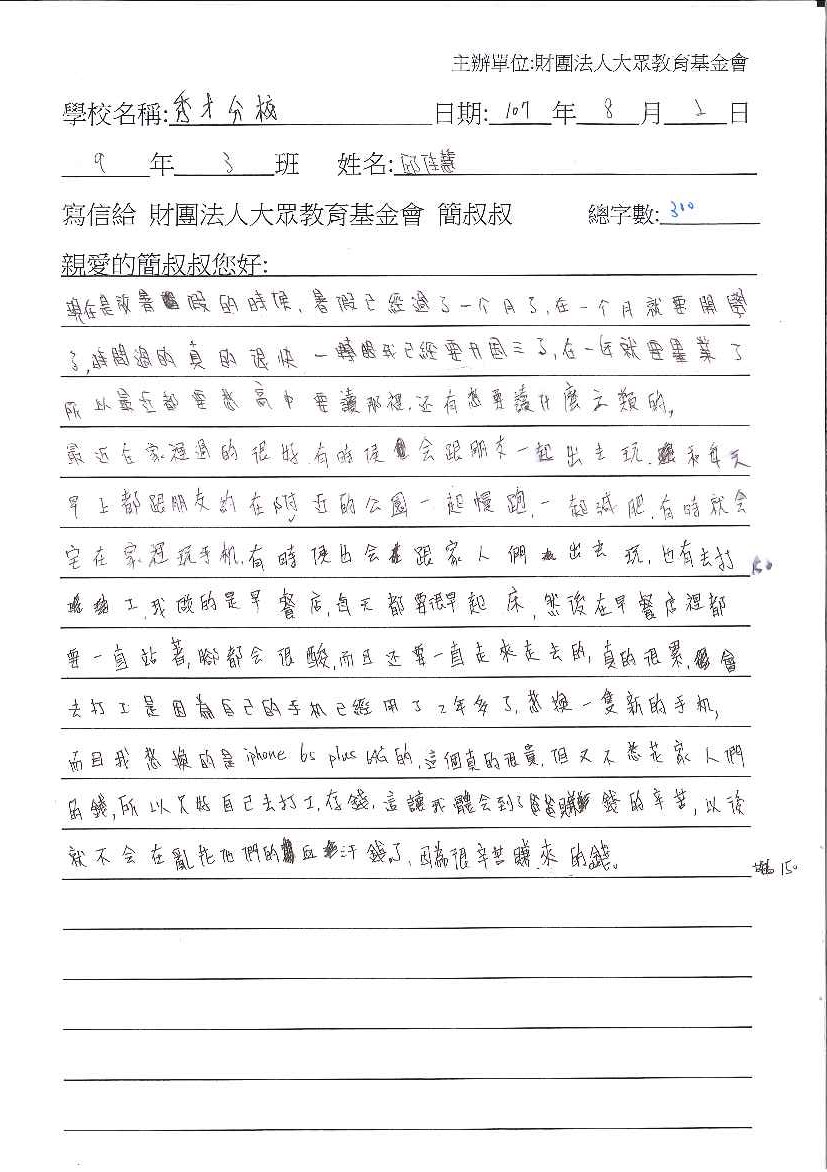 主辦單位:財團法人大眾教育基金會
學校名稱:秀才分校 日期: 107 年 8 月 2 日
9 年 3 班 姓名:邱佳慧
寫信給 財團法人大眾教育基金會 簡叔叔 總字數:310
親愛的簡叔叔您好:
現在是放暑假的時候,暑假已經過了一个月了,在一个月就要開學
了,時間過的真的很快一轉眼我已經要升國三了,在一年就要畢業了
所以最近都要想高中要讀那裡,还有想要讀什麼立類的,
最近在家裡過的很好,有時侯会跟朋友一起出去玩,和每天
早上都跟朋友約在附近的公園一起慢跑,一起減肥,有時就会
宅在家裡玩手机,有時侯也会跟家人們出去玩,也有去打
150
工,我做的是早餐店,每天都要很早起床,然後在早餐店裡都
要一直站著,腳都会很酸,而且还要一直走來走去的,真的很累,會
去打工是因為自己的手机已經用了2年多了,想換一隻新的手机,
而且我想換的是iphone 6s plus 64G的,這個真的很貴,但又不想花家人們
的錢,所以只好自己去打工,存錢,這讓我體会到了爸爸賺錢的辛苦,以後
就不会在亂花他們的血汗錢了,因為很辛苦賺來的錢。
150